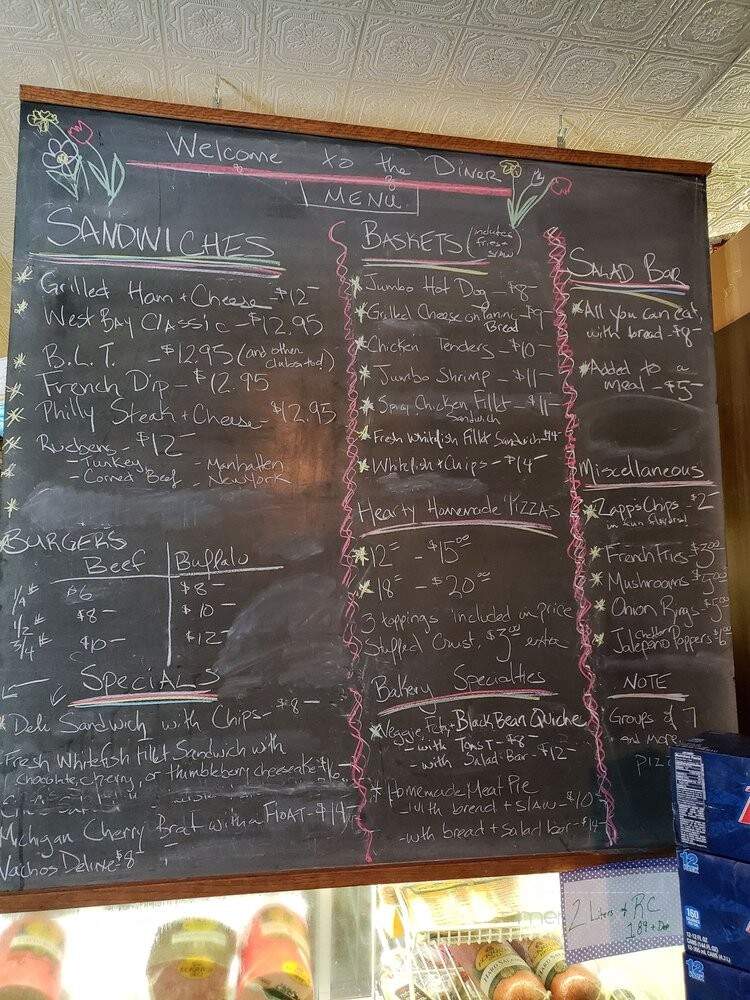 Welcome to the Diner
MENU
SANDWICHES
Grilled Ham + Cheese - $12-
West Bay Classic - $12.95
B.L.T. - $12.95 (and other clubs too!)
French Dip - $12.95
Philly Steak + Cheese - $12.95
Ruebens - $12-
- Turkey - Manhatten
- Corned Beef - New York
BURGERS
Beef Buffalo
1/4 # $6 $8-
1/2 # $8- $10-
3/4 # $10- $12-
SPECIALS
Deli Sandwich with Chips - $8-
Fresh Whitefish Fillet Sandwich with
chocolate, cherry, or thimbleberry cheesecake $16
Michigan Cherry Brat with a FLOAT - $14
Nachos Deluxe $8-
BASKETS (includes fries + slaw)
Jumbo Hot Dog - $8-
Grilled Cheese on Panini Bread - $9-
Chicken Tenders - $10-
Jumbo Shrimp - $11-
Spicy Chicken Fillet Sandwich - $11-
Fresh Whitefish Fillet Sandwich - $14-
Whitefish + Chips - $14-
Hearty Homemade PIZZAS
12" - $15.00
18" - $20.00
3 toppings included in price
Stuffed Crust, $3.00 extra
Bakery Specialties
Veggie, Feta, Black Bean Quiche
- with Toast - $8-
- with Salad Bar - $12-
Homemade Meat Pie
- with bread + slaw - $10-
- with bread + salad bar - $14-
SALAD BAR
All you can eat
with bread - $8-
Added to a
meal - $5-
Miscellaneous
Zapp's Chips - $2-
in fun flavors!
French Fries - $3.00
Mushrooms - $5.00
Onion Rings - $5.00
Cheddar
Jalepeno Poppers $6
NOTE
Groups of 7
and more
2 Liters of RC
1.89 + Dep
12
160
12